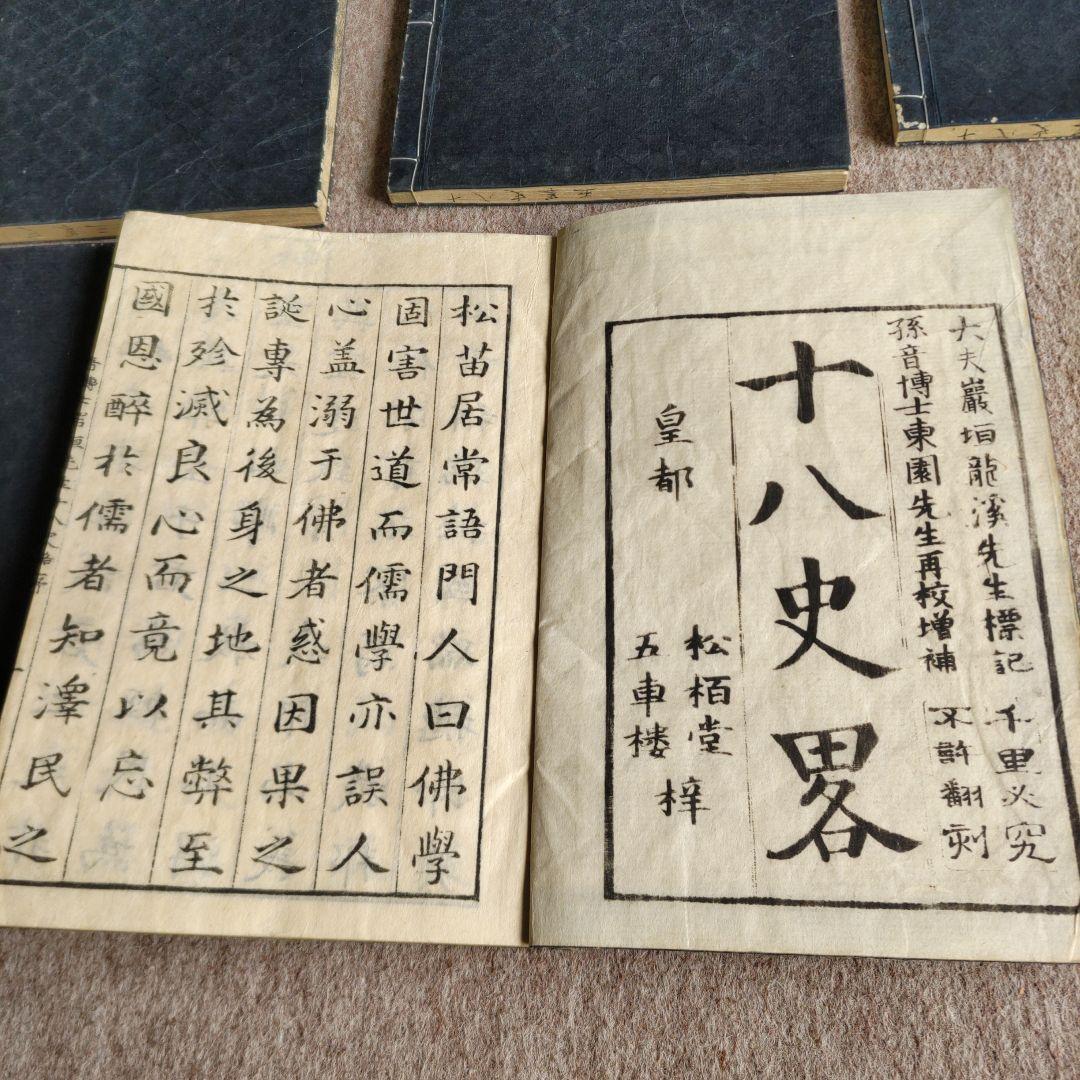 大夫巖垣龍溪先生標記
孫音博士東園先生再校增補
千里必究
不許翻刻
十八史畧
皇都
松栢堂
五車楼
梓
松苗居常語門人曰佛學
固害世道而儒學亦誤人
心盖溺于佛者惑因果之
誕專為後身之地其弊至
於殄滅良心而竟以忘
國恩醉於儒者知澤民之